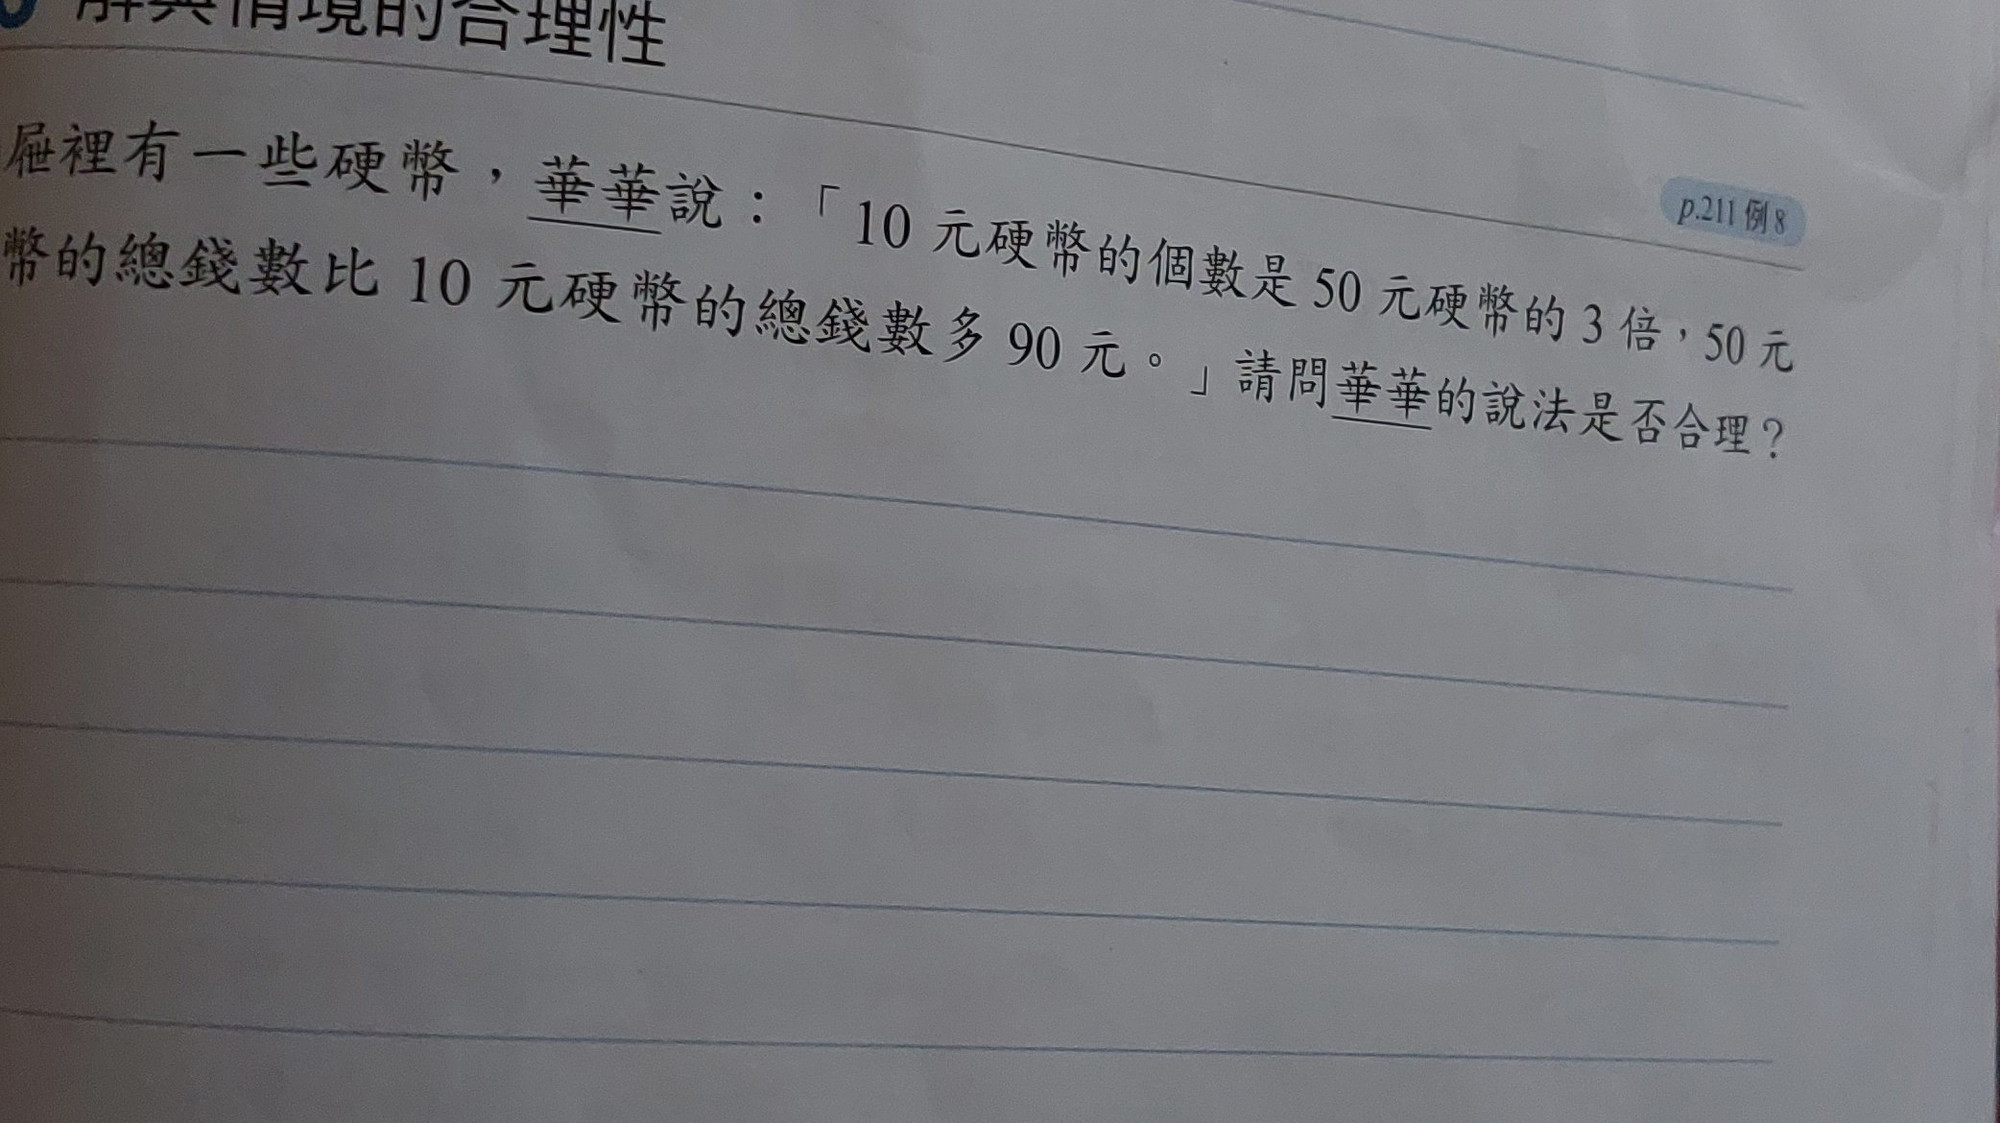 解與情境的合理性
p.211 例 8
屜裡有一些硬幣，華華說：「10 元硬幣的個數是 50 元硬幣的 3 倍，50 元
幣的總錢數比 10 元硬幣的總錢數多 90 元。」請問華華的說法是否合理？